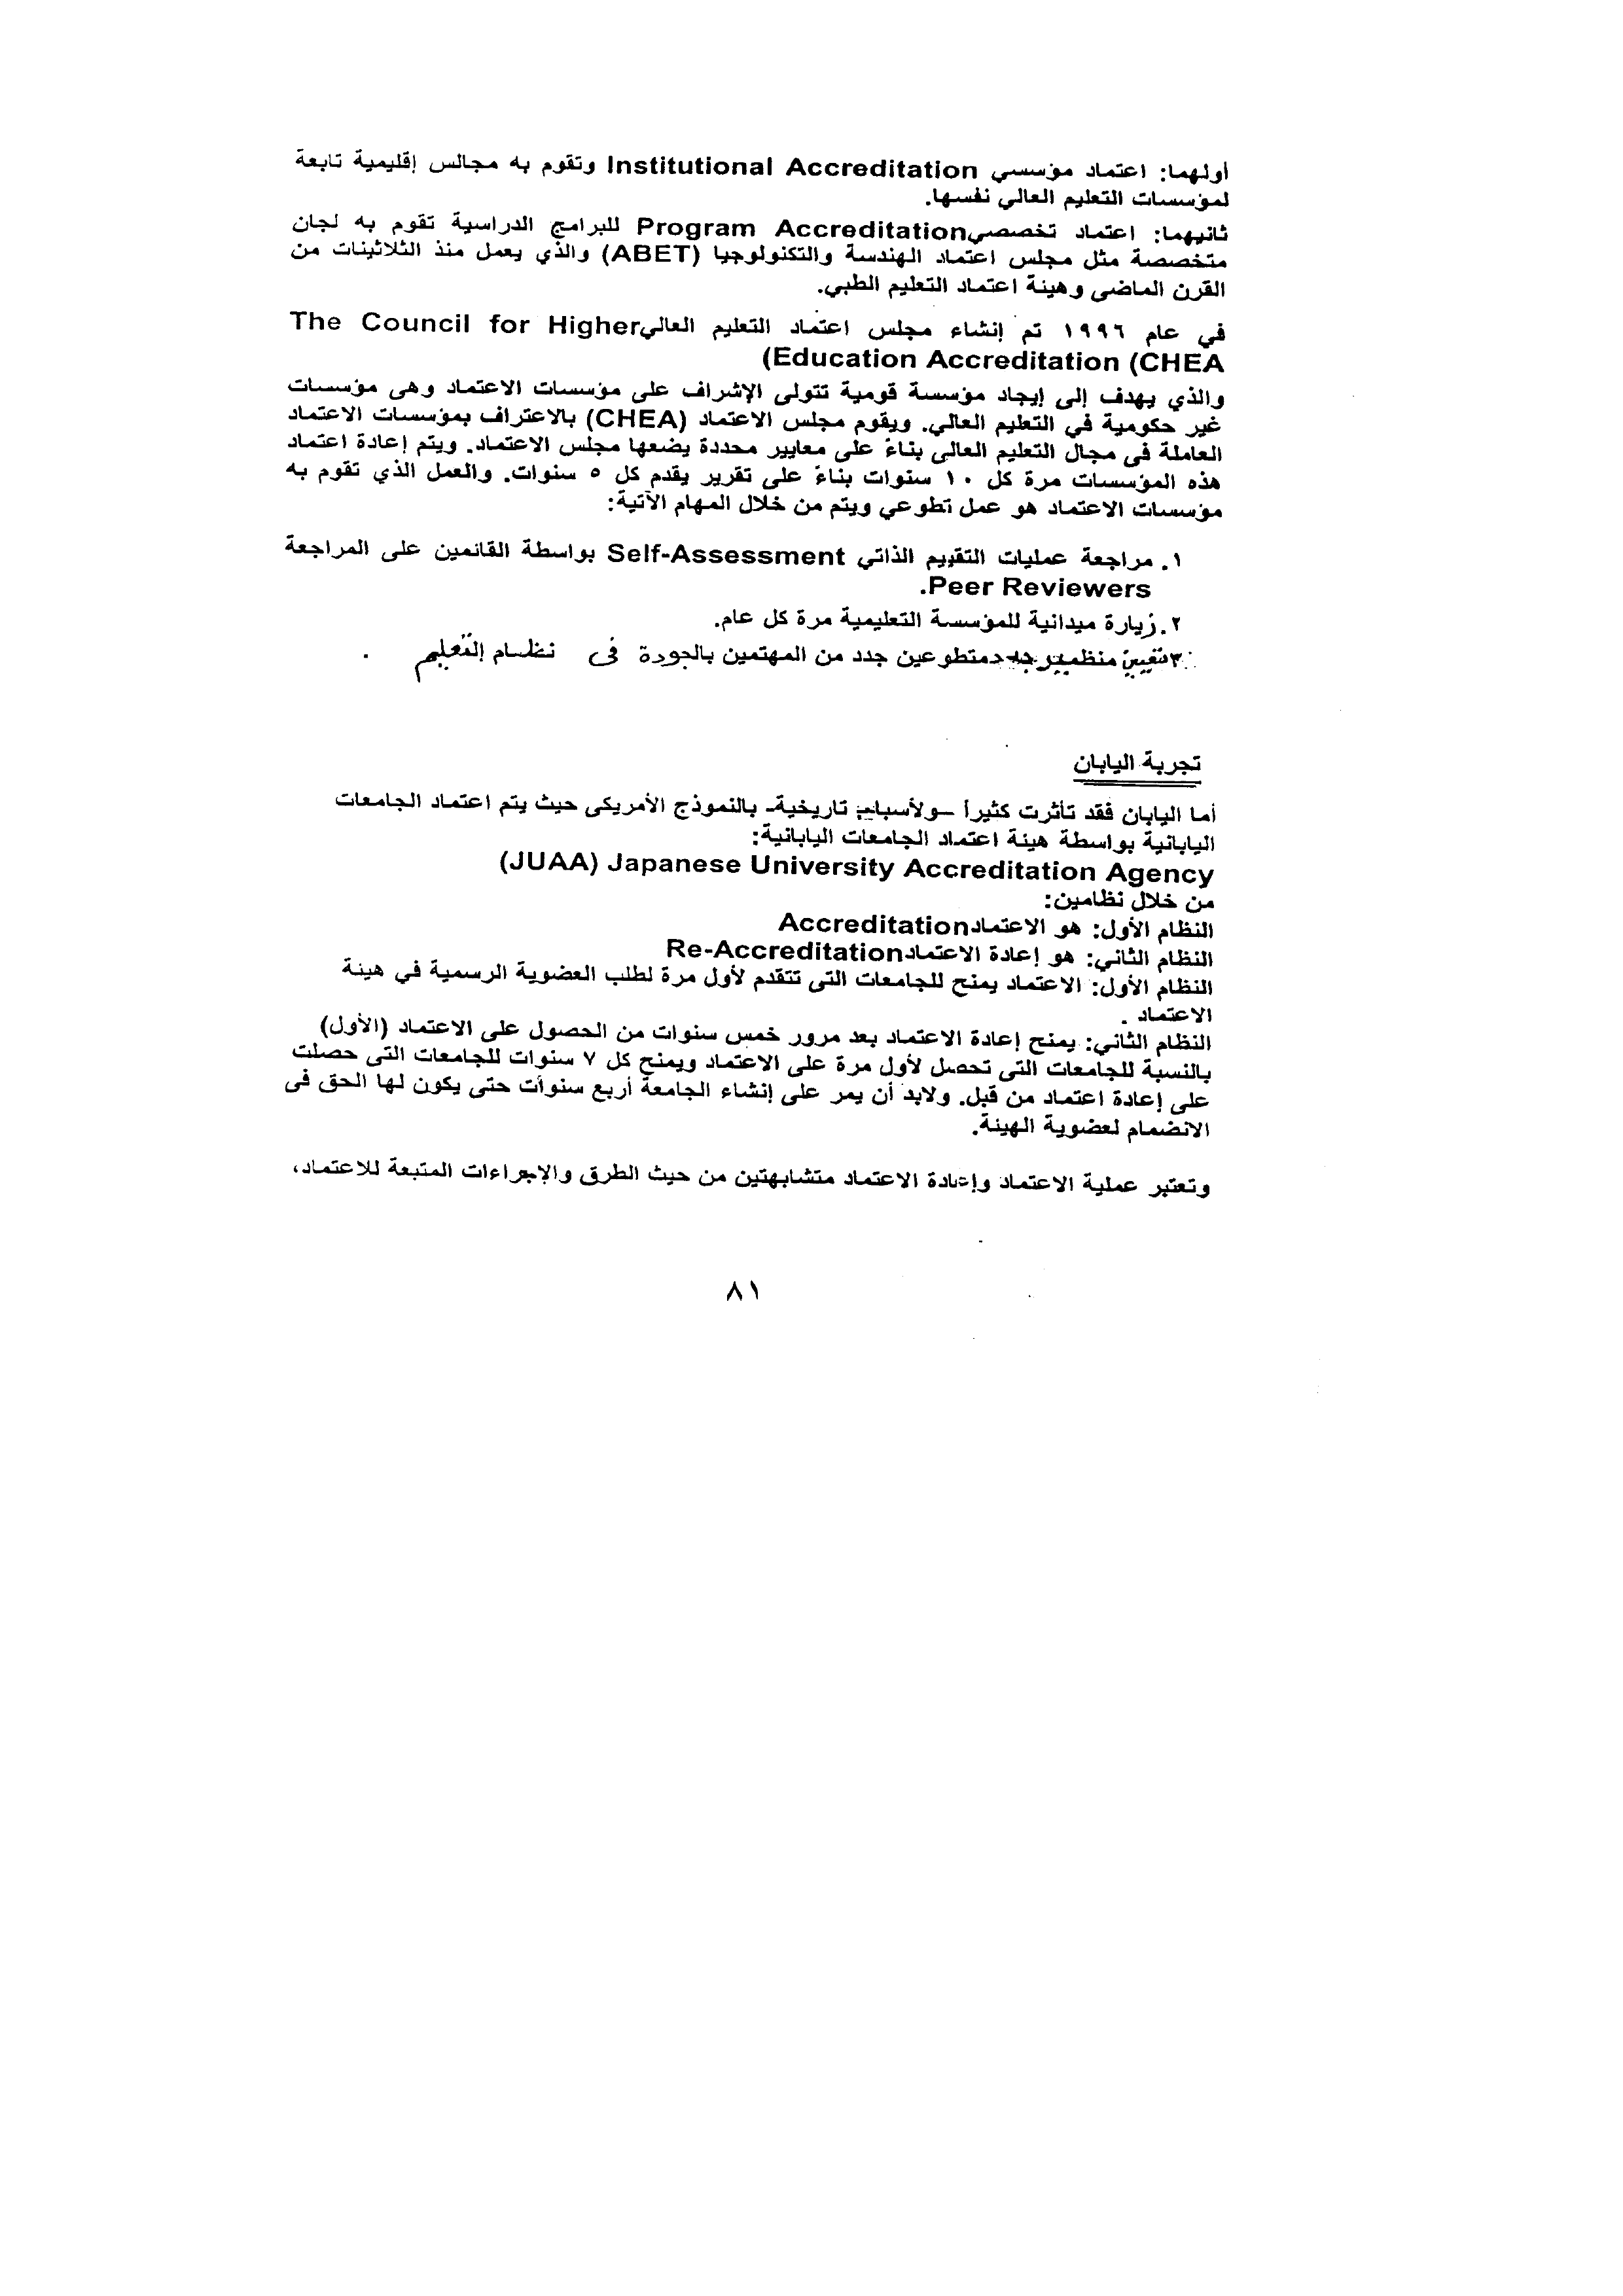 أولهما: اعتماد مؤسسي Institutional Accreditation وتقوم به مجالس إقليمية تابعة
لمؤسسات التعليم العالي نفسها.
ثانيهما: اعتماد تخصصيProgram Accreditation للبرامج الدراسية تقوم به لجان
متخصصة مثل مجلس اعتماد الهندسة والتكنولوجيا (ABET) والذي يعمل منذ الثلاثينات من
القرن الماضى وهيئة اعتماد التعليم الطبي.
في عام ١٩٩٦ تم إنشاء مجلس اعتماد التعليم العاليThe Council for Higher
Education Accreditation (CHEA)
والذي يهدف إلى إيجاد مؤسسة قومية تتولى الإشراف على مؤسسات الاعتماد وهى مؤسسات
غير حكومية في التعليم العالي. ويقوم مجلس الاعتماد (CHEA) بالاعتراف بمؤسسات الاعتماد
العاملة فى مجال التعليم العالى بناءً على معايير محددة يضعها مجلس الاعتماد. ويتم إعادة اعتماد
هذه المؤسسات مرة كل ١٠ سنوات بناءً على تقرير يقدم كل ٥ سنوات. والعمل الذي تقوم به
مؤسسات الاعتماد هو عمل تطوعي ويتم من خلال المهام الآتية:
١. مراجعة عمليات التقييم الذاتي Self-Assessment بواسطة القائمين على المراجعة
Peer Reviewers.
٢. زيارة ميدانية للمؤسسة التعليمية مرة كل عام.
٣ تعيين متطوعين جدد من المهتمين بالجودة فى نظام التعليم .
تجربة اليابان
أما اليابان فقد تأثرت كثيراً –ولأسباب تاريخية- بالنموذج الأمريكى حيث يتم اعتماد الجامعات
اليابانية بواسطة هيئة اعتماد الجامعات اليابانية:
(JUAA) Japanese University Accreditation Agency
من خلال نظامين:
النظام الأول: هو الاعتمادAccreditation
النظام الثاني: هو إعادة الاعتمادRe-Accreditation
النظام الأول: الاعتماد يمنح للجامعات التى تتقدم لأول مرة لطلب العضوية الرسمية في هيئة
الاعتماد .
النظام الثاني: يمنح إعادة الاعتماد بعد مرور خمس سنوات من الحصول على الاعتماد (الأول)
بالنسبة للجامعات التى تحصل لأول مرة على الاعتماد ويمنح كل ٧ سنوات للجامعات التى حصلت
على إعادة اعتماد من قبل. ولابد أن يمر على إنشاء الجامعة أربع سنوات حتى يكون لها الحق فى
الانضمام لعضوية الهيئة.
وتعتبر عملية الاعتماد وإعادة الاعتماد متشابهتين من حيث الطرق والإجراءات المتبعة للاعتماد،
٨١